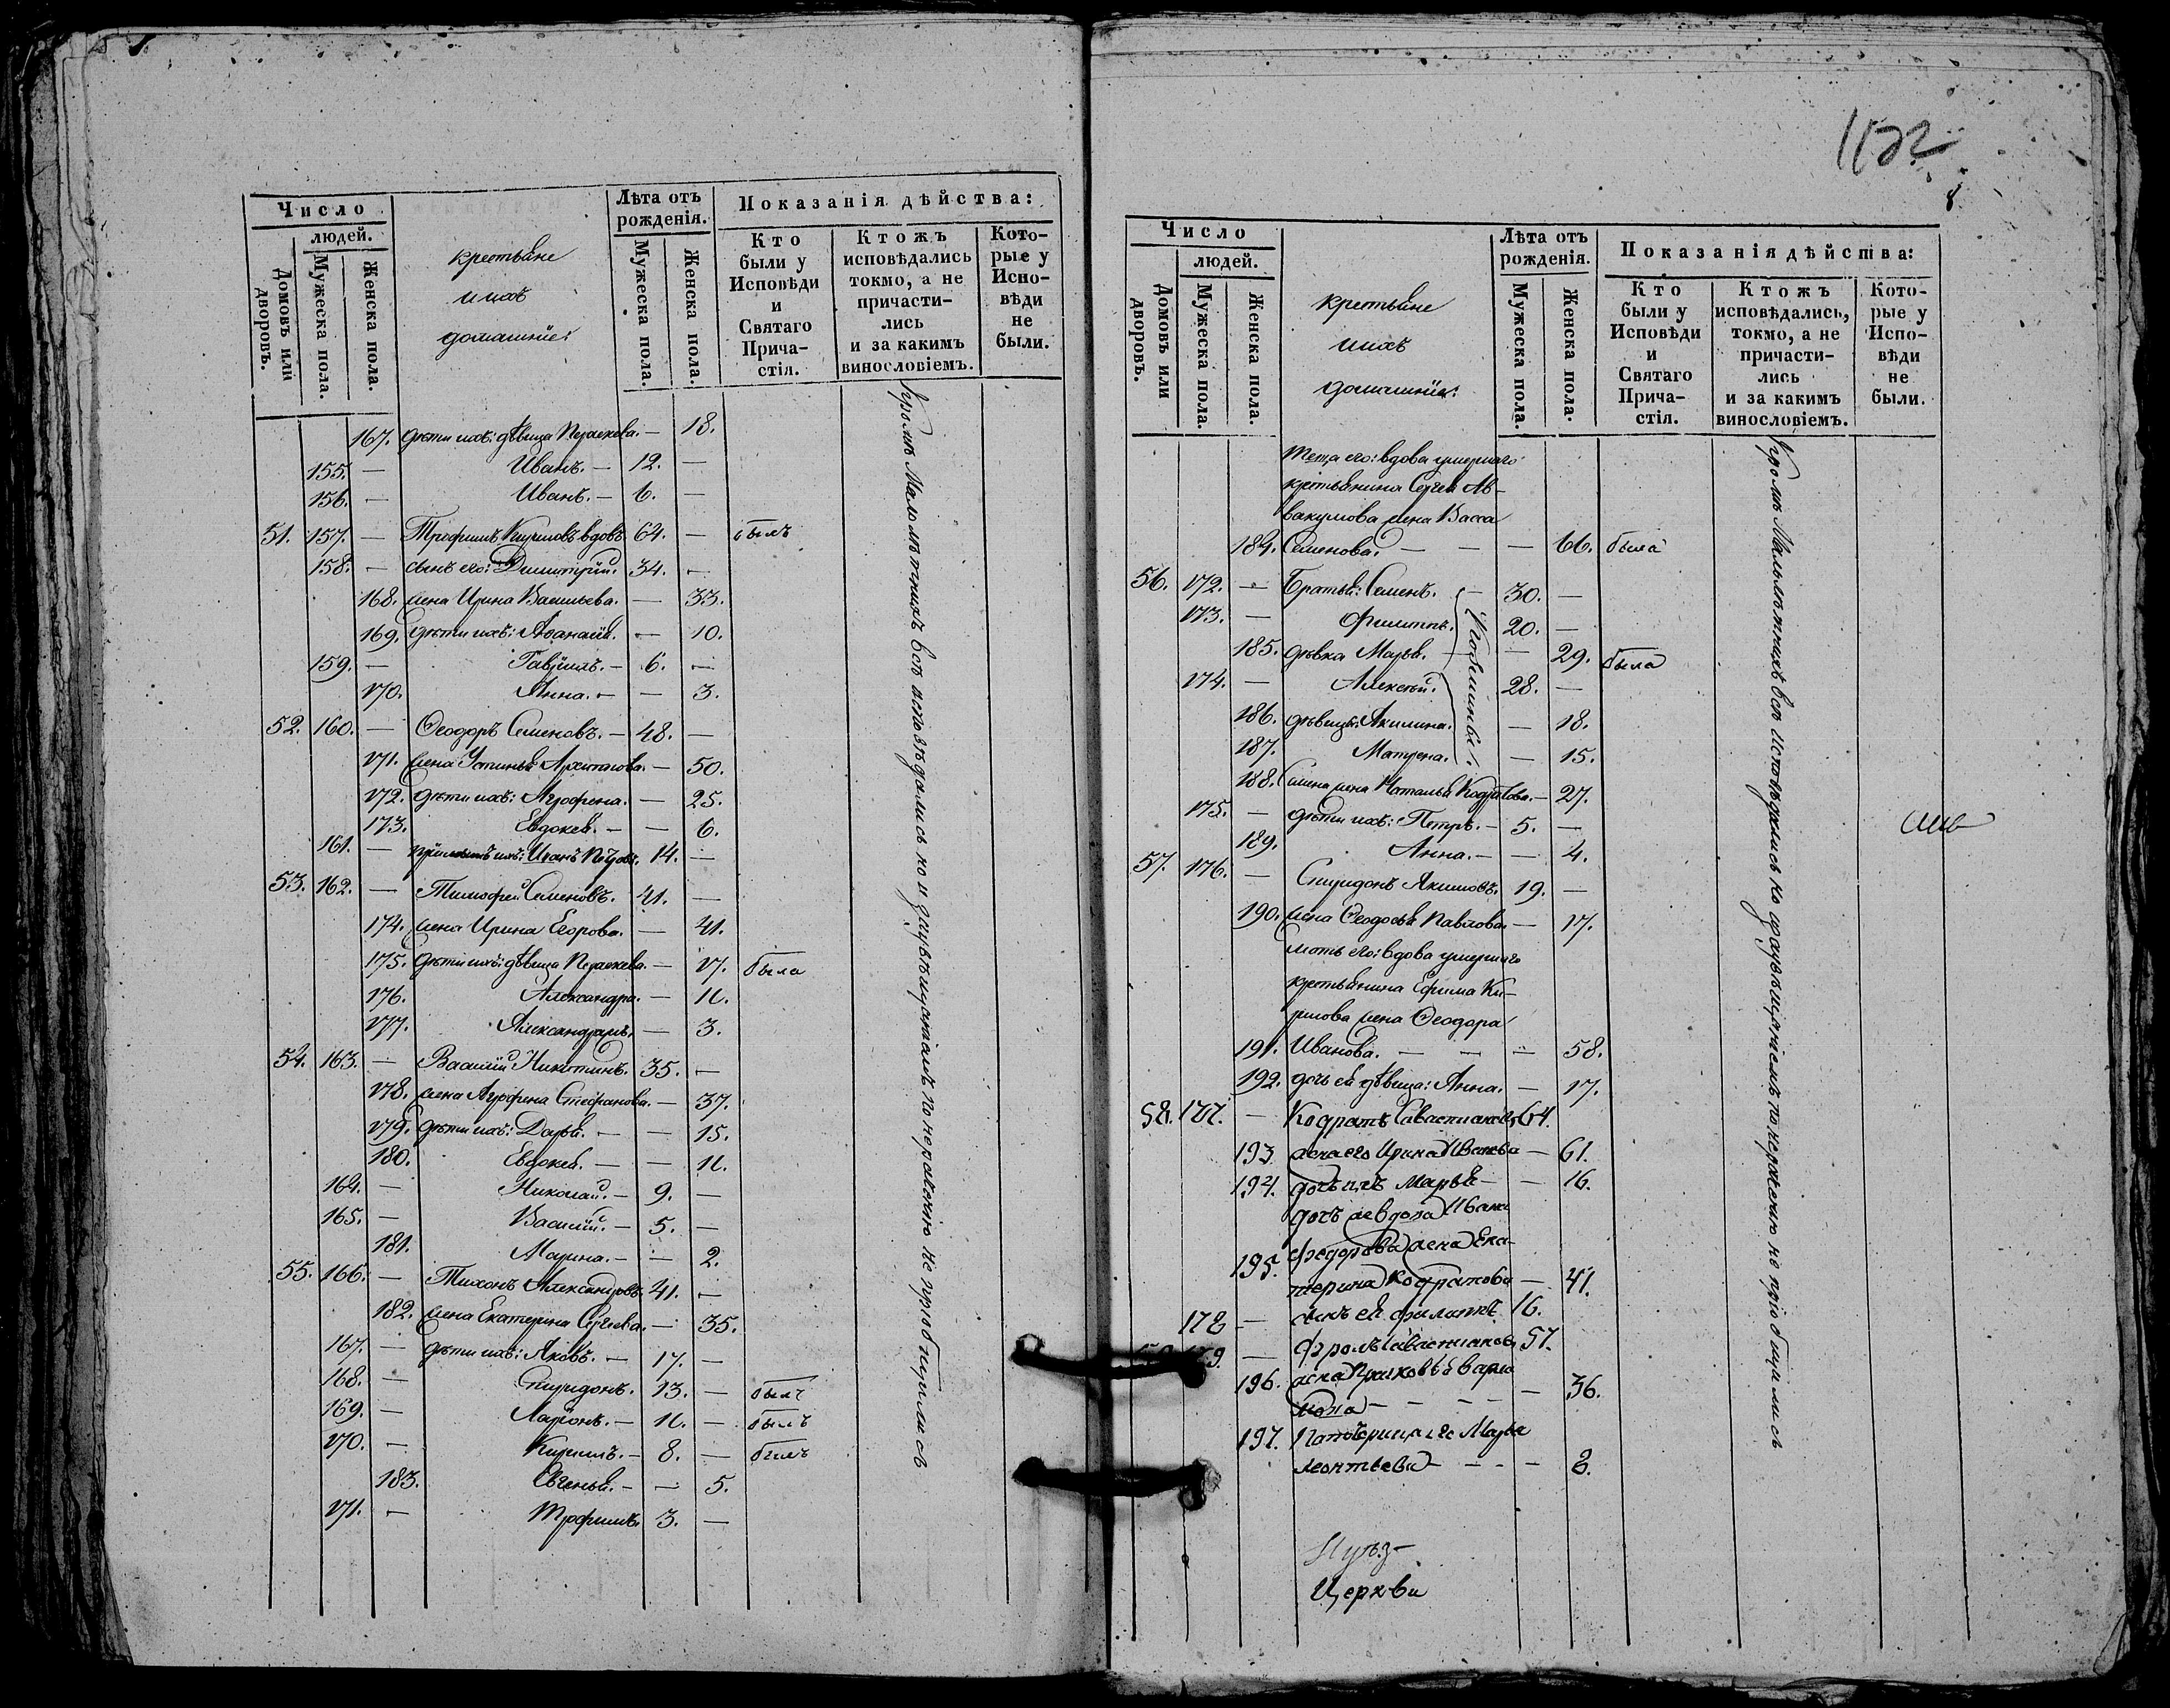 Число
людей.
Домовъ или дворовъ.
Мужеска пола.
Женска пола.
крестьяне
и ихъ
домашніе:
Лѣта отъ рожденія.
Мужеска пола.
Женска пола.
Показанія дѣйства:
Кто были у Исповѣди и Святаго Прича-стія.
Ктожъ исповѣдались токмо, а не причасти-лись и за какимъ винословіемъ.
Кото-рые у Испо-вѣди не были.
167. дѣти ихъ: дѣвица Параскева. — 18.
155. — Иванъ. — 12. —
156. — Иванъ. — 6. —
51. 157. — Трофимъ Кириловъ вдовъ 64. — былъ
158. — сынъ его: Димитрій. 34. —
168. жена Ирина Васильева. — 33.
169. дѣти ихъ: Афанасія. — 10.
159. — Гавріилъ. — 6. —
170. Анна. — — 3.
52. 160. — Ѳеодоръ Семеновъ. — 48. —
171. жена Устинья Архипова. — 50.
172. дѣти ихъ: Агрофена. — 25.
173. Евдокея. — — 6.
161. — пріемышъ ихъ: Иванъ Петровъ. 14. —
53. 162. — Тимофей Семеновъ. 41. —
174. жена Ирина Егорова. — 41.
175. дѣти ихъ: дѣвица Параскева. — 17. была
176. Александра. — 11.
177. Александра. — 3.
54. 163. — Василій Никитинъ. 35. —
178. жена Агрофена Стефанова. — 37.
179. дѣти ихъ: Дарья. — — 15.
180. Евдокея. — — 11.
164. — Николай. — 9. —
165. — Василій. — 5. —
181. Марина. — — 2.
55. 166. — Тихонъ Александровъ. 41. —
182. жена Екатерина Сергѣева. — 35.
167. — дѣти ихъ: Яковъ. — 17. —
168. — Спиридонъ. 13. — былъ
169. — Ларіонъ. — 11. — былъ
170. — Кирилъ. — 8. — былъ
183. Евгенья. — — 5.
171. — Трофимъ. 3. —
Кромѣ Малолѣтнихъ всѣ исповѣдались но и увѣщаніемъ по нераченію не пріобщились
1122
Число
людей.
Домовъ или дворовъ.
Мужеска пола.
Женска пола.
крестьяне
и ихъ
домашніе:
Лѣта отъ рожденія.
Мужеска пола.
Женска пола.
Показанія дѣйства:
Кто были у Исповѣди и Святаго Прича-стія.
Ктожъ исповѣдались, токмо, а не причасти-лись и за какимъ винословіемъ.
Кото-рые у Испо-вѣди не были.
теща его: вдова умершаго
крестьянина Сергея Ав-
вакумова жена Васса
184. Семенова. — — — 66. была
56. 172. — Братья: Семенъ. — 30. —
173. — Филиппъ. 20. —
185. дѣвка Марья. — — 29. была
174. — Алексѣй. 28. —
186. дѣвицы: Акилина. — 18.
187. Матрена. — 15.
188. Семена жена Наталья Кодратова. — 27.
175. — дѣти ихъ: Петръ. — 5. —
189. Анна. — — 4.
57. 176. — Спиридонъ Акимовъ. 19. —
190. жена Ѳеодосья Павлова. — 17.
мать его: вдова умершаго
крестьянина Ефима Ки-
рилова жена Ѳеодора
191. Иванова. — — — 58.
192. дочь ея дѣвица: Анна. — 17.
58. 177. — Кодратъ Савастиановъ 64.
193. жена его Ирина Иванова — 61.
194. дочь ихъ Марья — — 16.
дочь же вдова Ивана
Федорова жена Ека-
195. терина Кодратова — 41.
178 — сынъ ея Филиппъ 16.
59. 179. — Фролъ Савастиановъ 57.
196. жена Прасковья Варла
мова — — — — 36.
197. Падчерица его Марья
Леонтьева — — — 8.
Церкви
Кромѣ Малолѣтнихъ всѣ исповѣдались но увѣщаніемъ по нераченію не пріобщились